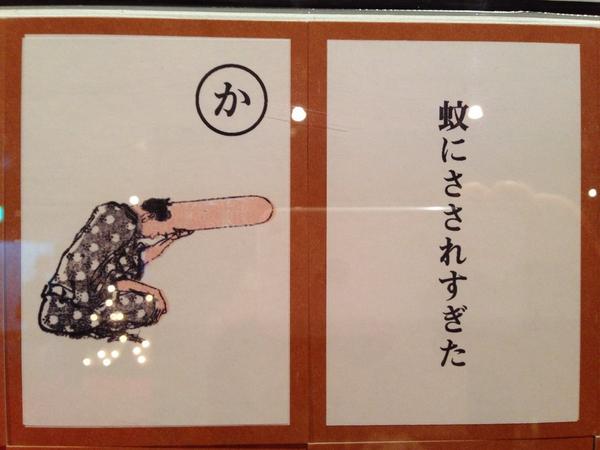 か
蚊にさされすぎた